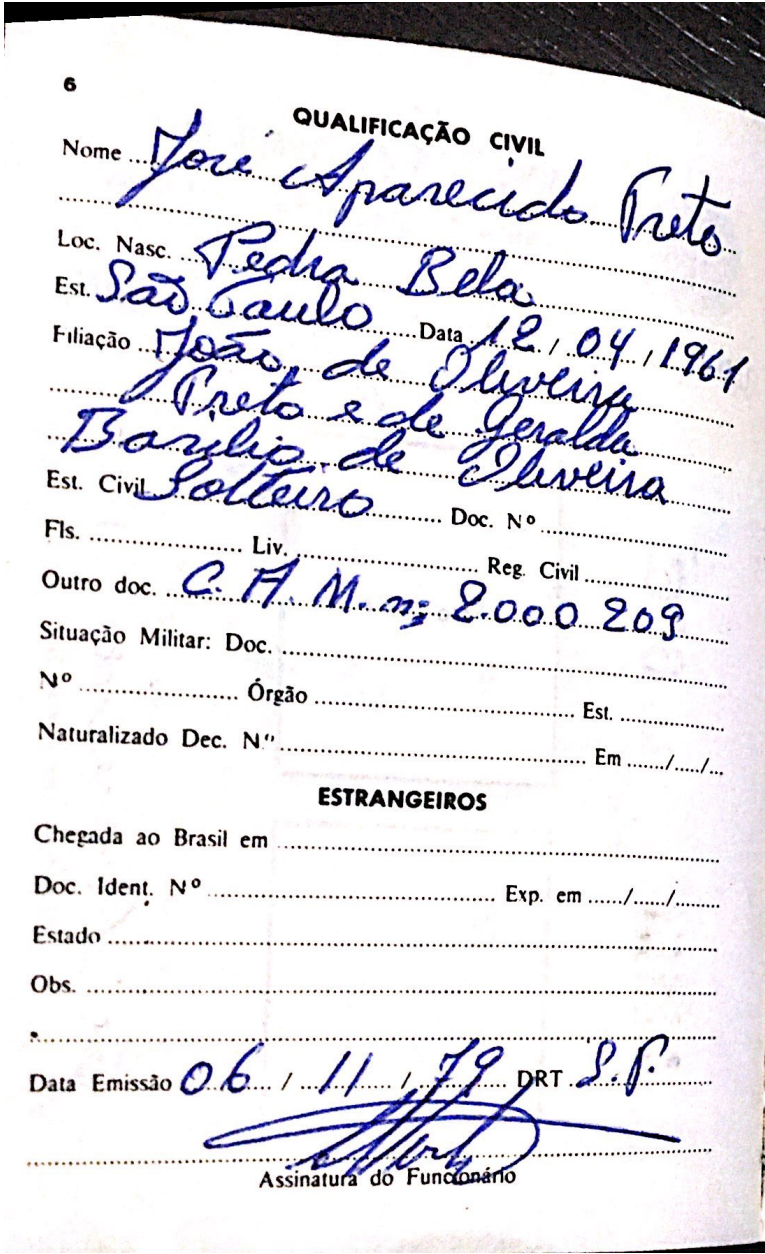 6
QUALIFICAÇÃO CIVIL
Nome José Aparecido Preto
Loc. Nasc. Pedra Bela
Est. São Paulo Data 12 / 04 / 1961
Filiação João de Oliveira
Preto e de Geralda
Basilio de Oliveira
Est. Civil Solteiro Doc. Nº
Fls. Liv. Reg. Civil
Outro doc. C. A. M. n: 2.000 209
Situação Militar: Doc.
Nº Órgão Est.
Naturalizado Dec. Nº Em / /
ESTRANGEIROS
Chegada ao Brasil em
Doc. Ident. Nº Exp. em / /
Estado
Obs.
Data Emissão 06 / 11 / 79 DRT S.P.
Assinatura do Funcionário